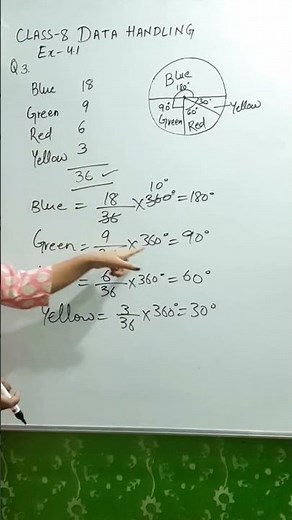 CLASS-8 DATA HANDLING
Ex-4.1
Q3.
Blue 18
Green 9
Red 6
Yellow 3
36 ✓
Blue
180°
90° 30°
60°
Green Red
Yellow
10°
Blue = 18/36 × 360° = 180°
Green = 9/ × 360° = 90°
= 6/36 × 360° = 60°
Yellow = 3/36 × 360° = 30°